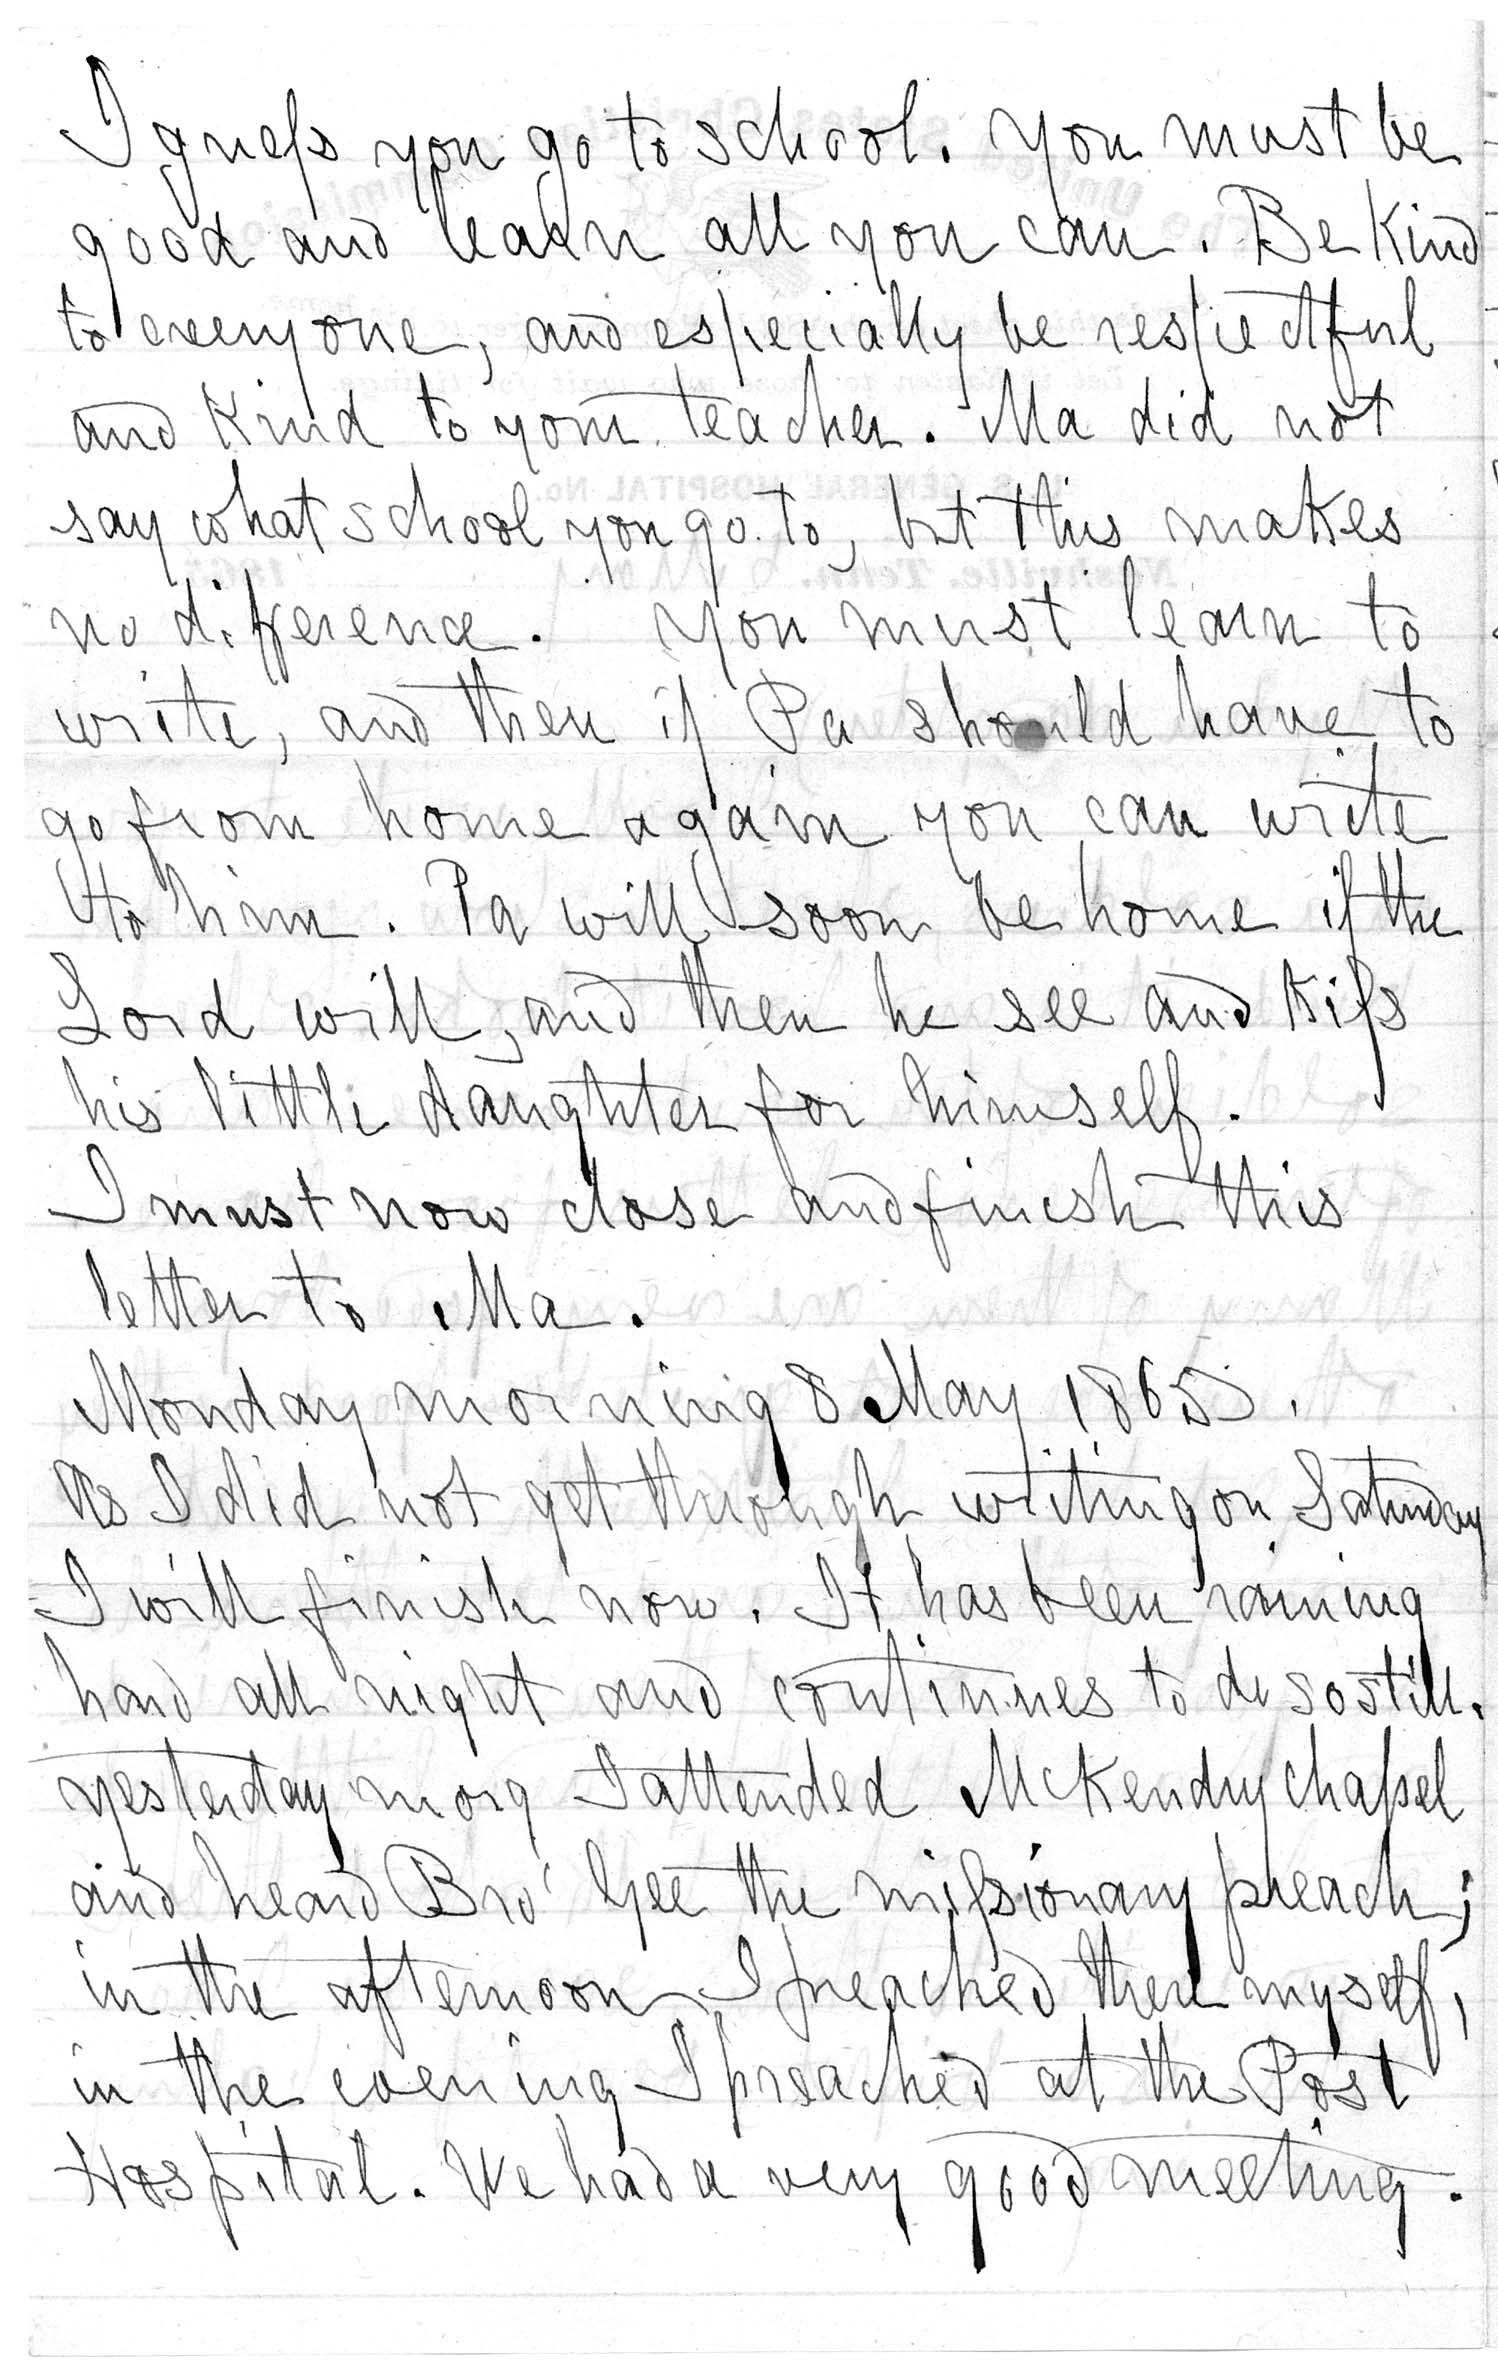 I guess you go to school. You must be
good and learn all you can. Be Kind
to everyone, and especially be respectful
and Kind to your teacher. Ma did not
say what school you go to, but this makes
no difference. You must learn to
write, and then if Pa should have to
go from home again you can write
to him. Pa will soon be home if the
Lord will, and then he see and Kiss
his little daughter for himself.
I must now close and finish this
letter to Ma.
Monday morning 8 May 1865.
As I did not get through writing on Saturday
I will finish now. It has been raining
hard all night and continues to do so still.
yesterday morg I attended McKendry chapel
and heard Bro' Gee the missionary preach;
in the afternoon I preached there myself,
in the evening I preached at the Post
Hospital. We had a very good meeting.